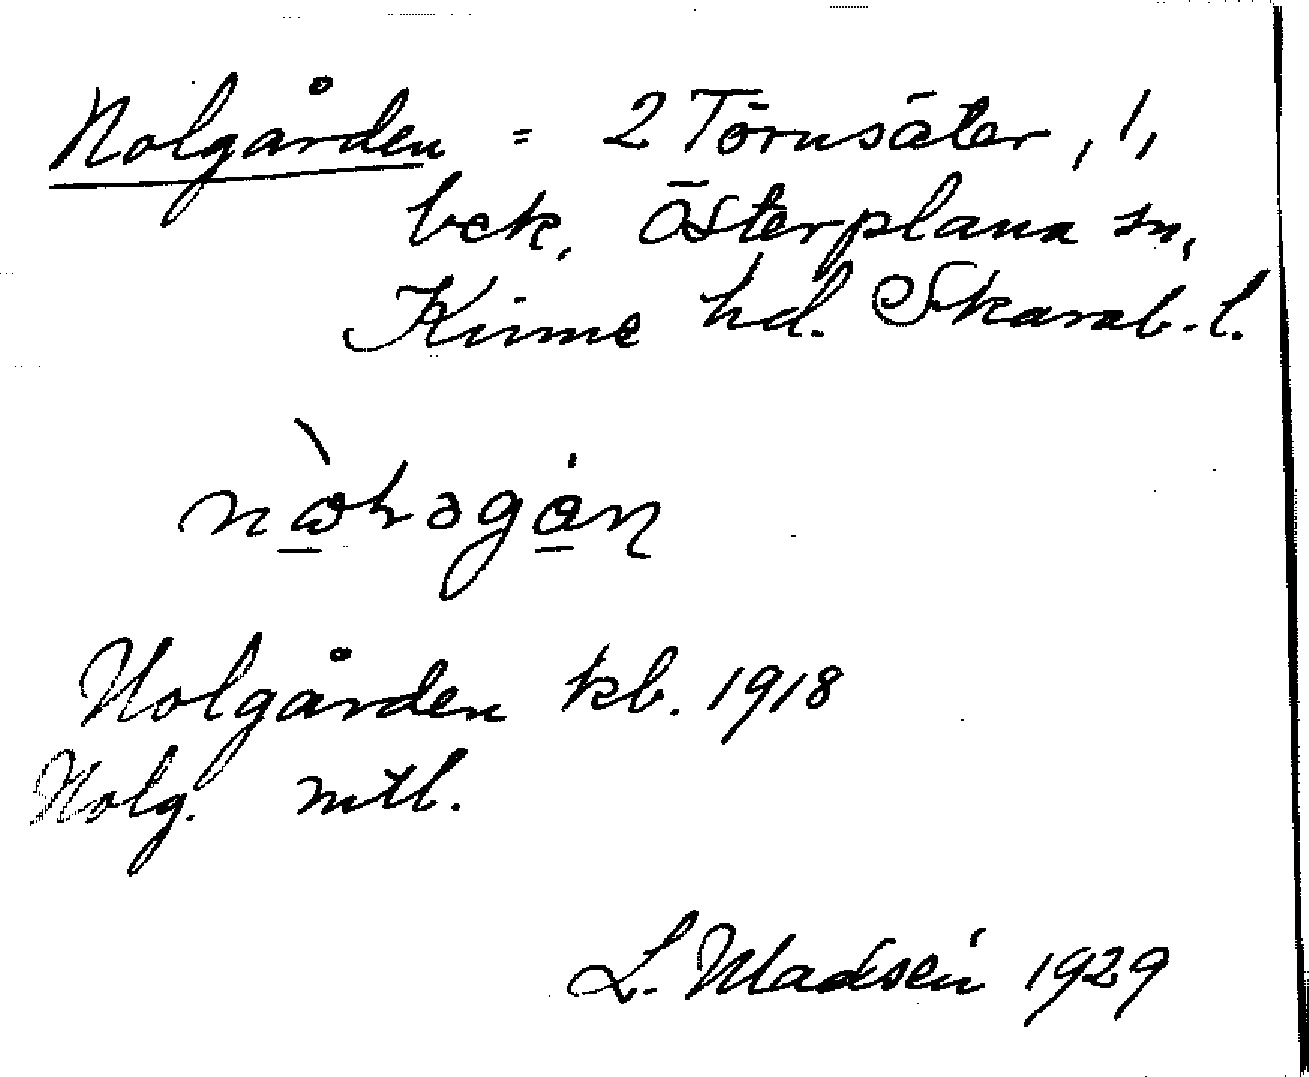 Nolgården = 2 Törnsäter, 1,
bek, Österplana sn,
Kinne hd. Skarab. l.
Nolgården kb. 1918
Nolg. mtl.
L. Madsén 1929